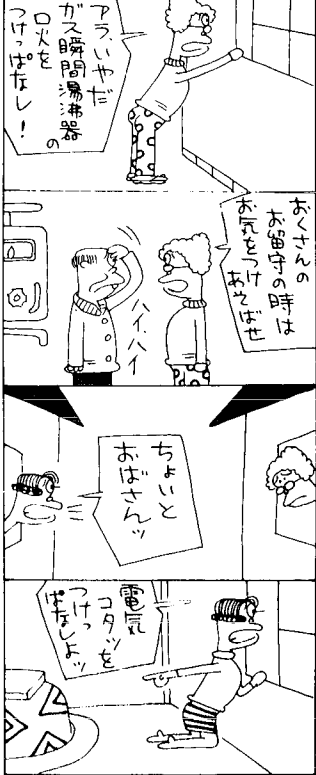 アラ、いやだ
ガス瞬間湯沸器の
口火を
つけっぱなし！
おくさんの
お留守の時は
お気をつけ
あそばせ
ハイ、ハイ
ちょいと
おばさんッ
電気
コタツを
つけっ
ぱなしよッ